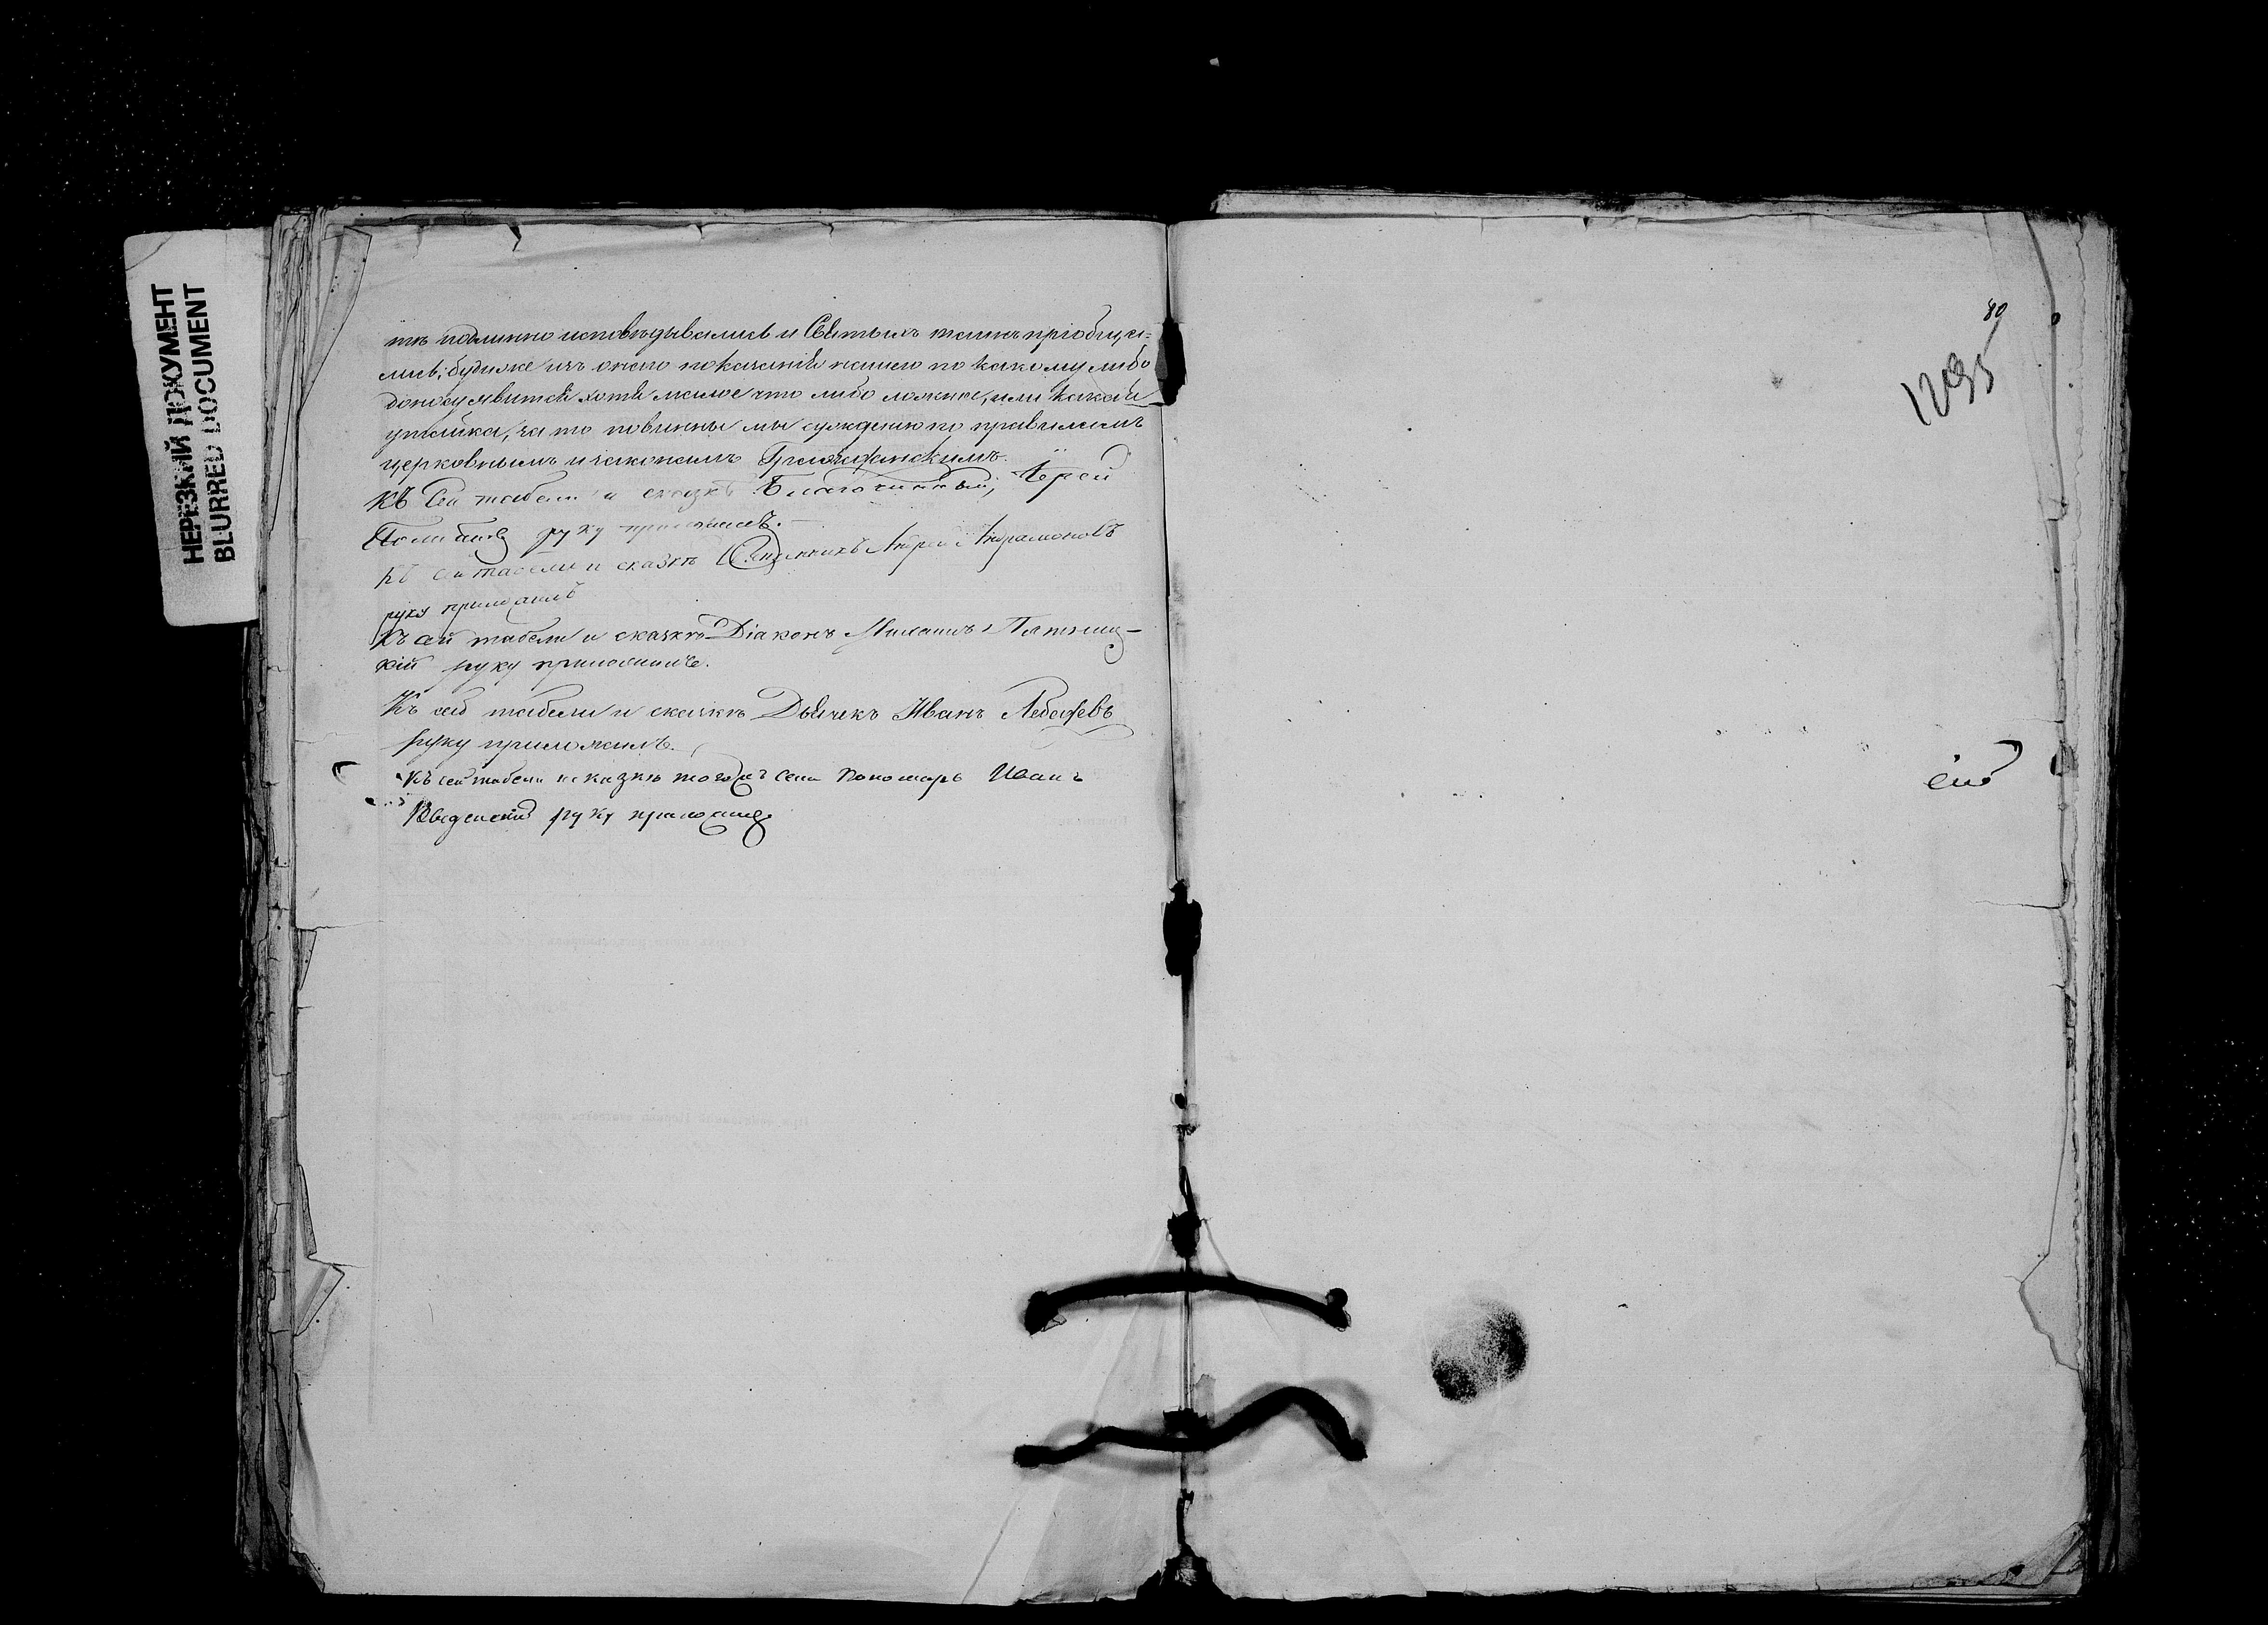 НЕРЕЗКИЙ ДОКУМЕНТ
BLURRED DOCUMENT
тѣ подлинно исповѣдывались и Святыхъ таинъ пріобща=
лись; будеже изъ онаго показанія нашего по какому либо
доносу явится хотя малое что либо ложное, или какая
утайка, за то повинны мы суждению по правиламъ
церковнымъ и законамъ Гражданскимъ.
Къ Сей табели и сказкѣ Благочинный, Іерей
руку приложилъ.
Къ сей табели и сказкѣ Священникъ Андрей
руку приложилъ
Къ сей табели и сказкѣ Діаконъ Михаилъ Пятниц-
кій руку приложилъ.
Къ сей табели и сказкѣ Дьячекъ Иванъ Лебедевъ
руку приложилъ.
Къ сей табели и сказкѣ тогожъ села Пономарь Иванъ
Введенскій руку приложилъ
80
1295